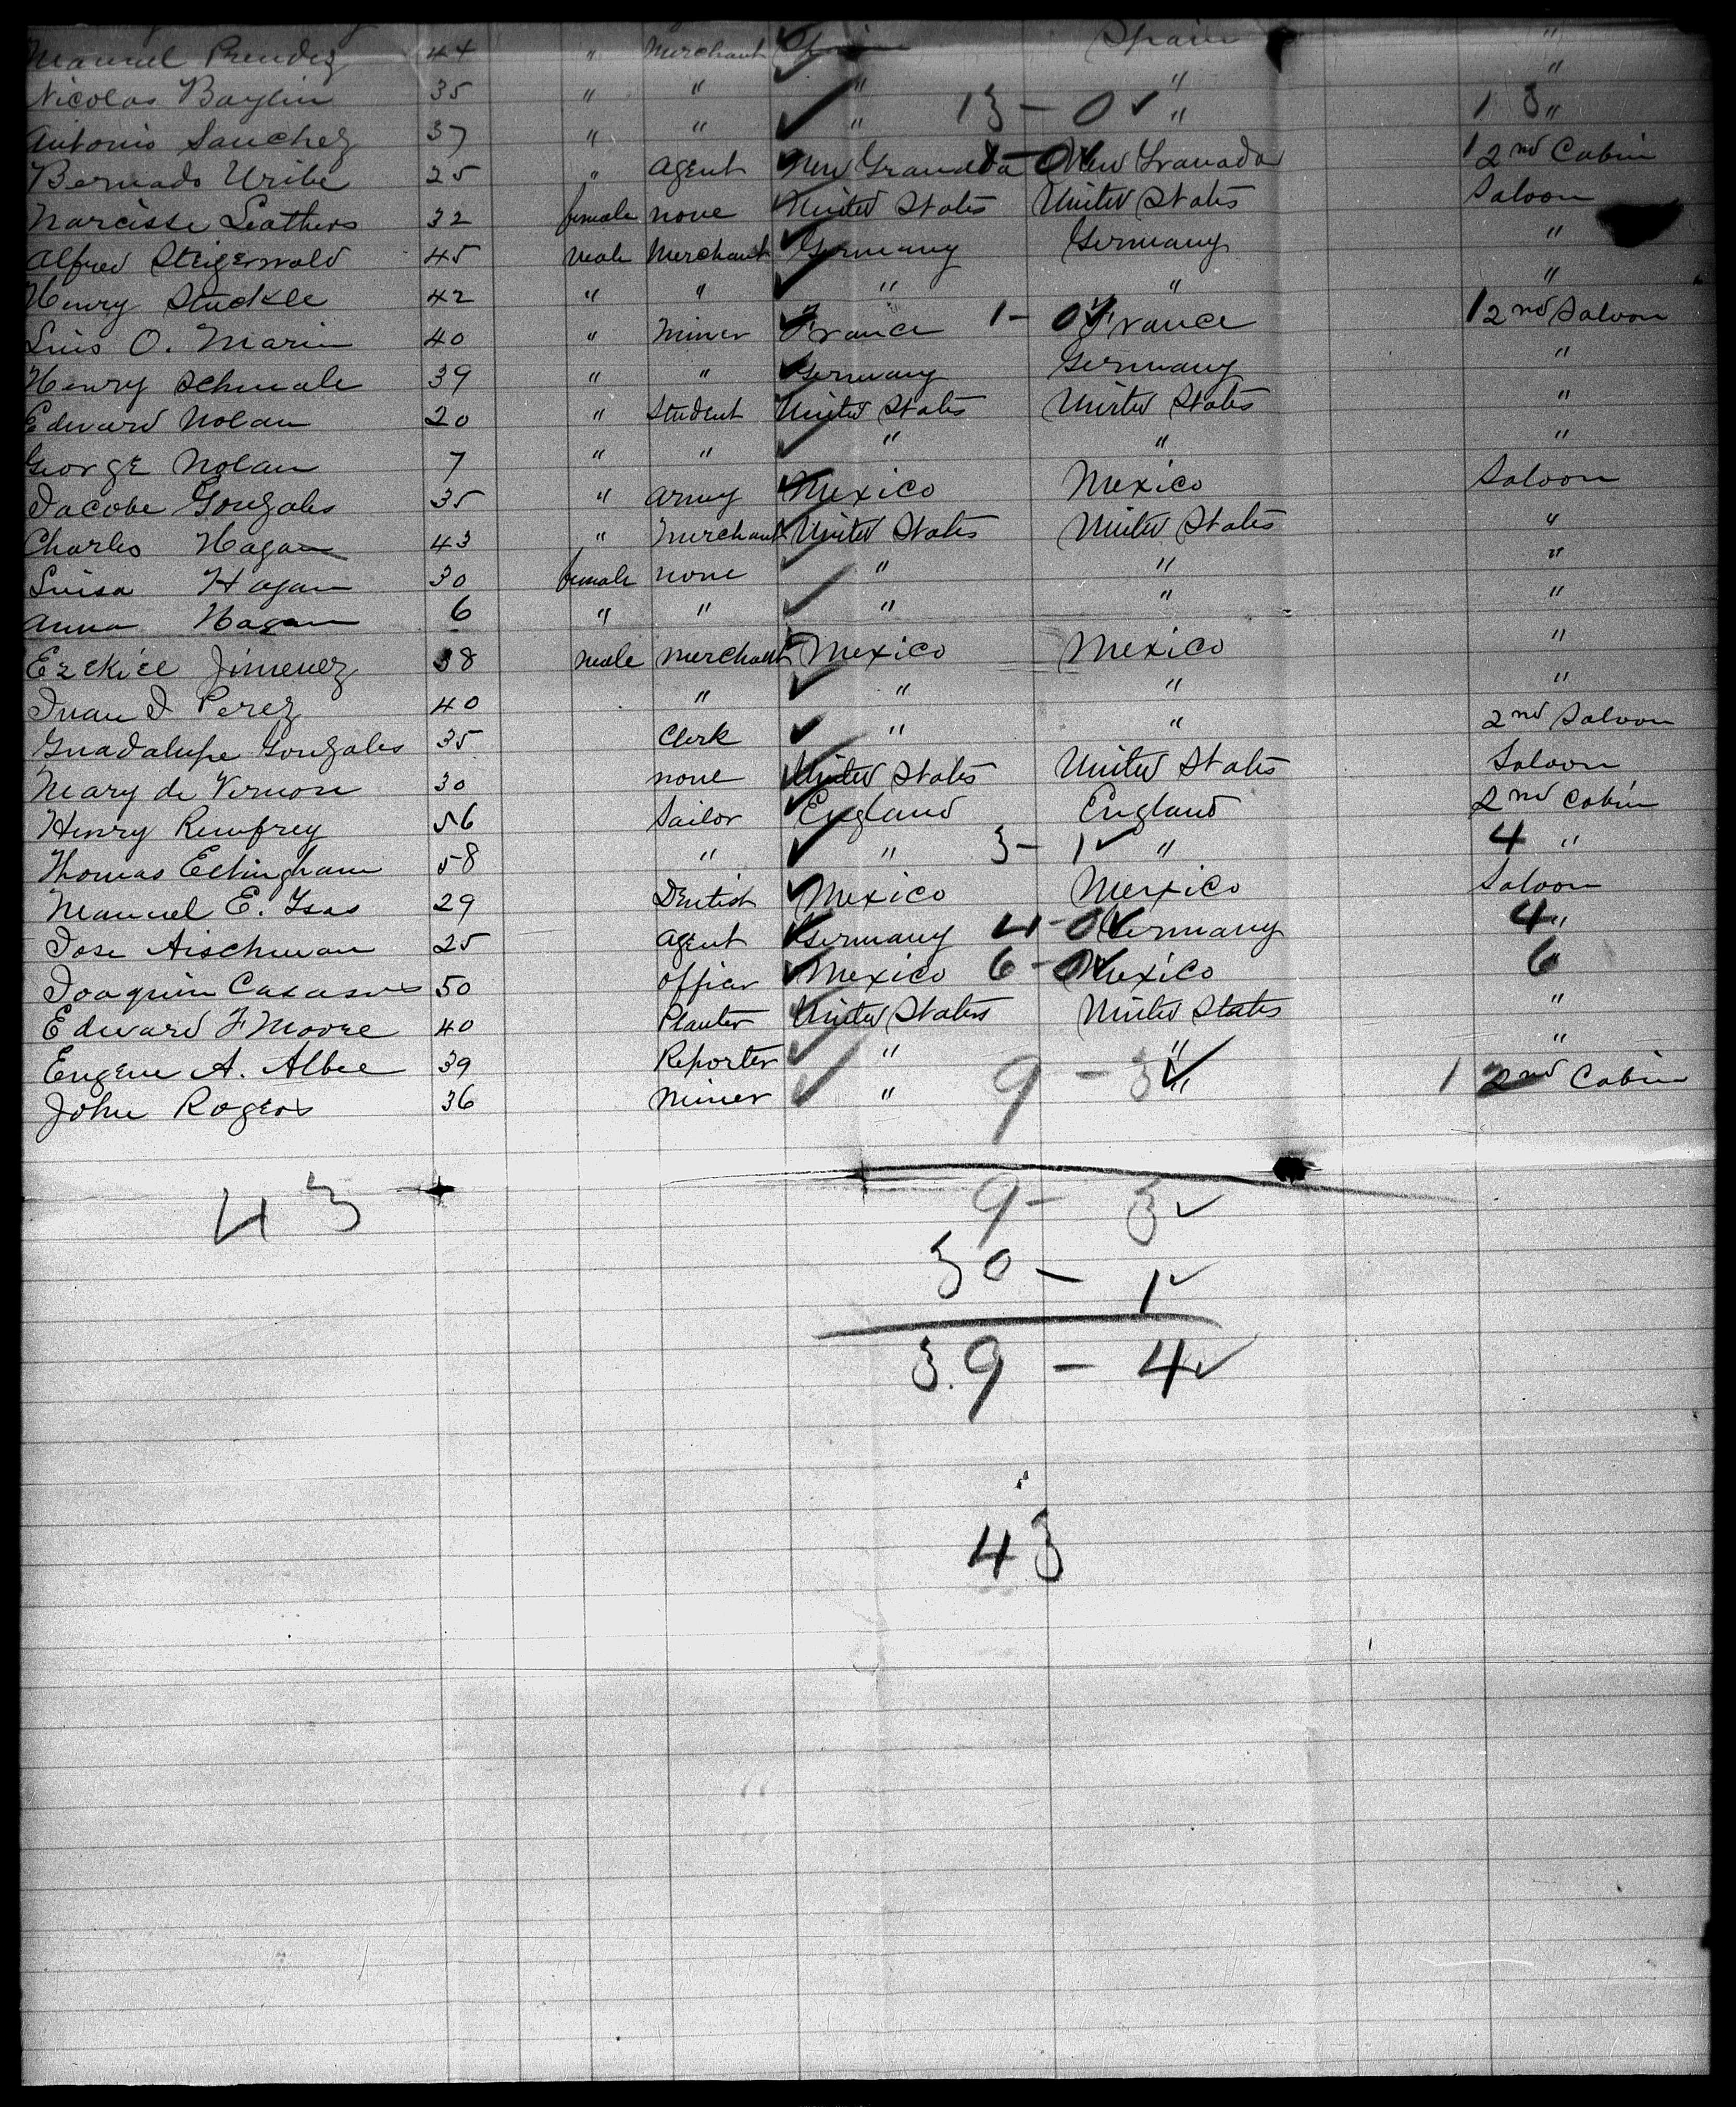 Manuel Prendez 44 " Merchant Spain Spain "
Nicolas Baylin 35 " " " " "
Antonio Sanchez 37 " " " 13 - 0 " 13 "
Bernado Uribe 25 " Agent New Granada 1 - 0 New Granada 1 2nd Cabin
Narcisse Leathers 32 female none United States United States Saloon
Alfred Steigerwald 45 Male Merchant Germany Germany "
Henry Stuckle 42 " " " " "
Luis O. Marin 40 " Miner France 1 - 0 France 1 2nd Saloon
Henry Schmale 39 " " Germany Germany "
Edward Nolan 20 " Student United States United States "
George Nolan 7 " " " " "
Jacobe Gonzales 35 " Army Mexico Mexico Saloon
Charles Hagan 43 " Merchant United States United States "
Luisa Hagan 30 female none " " "
Anna Hagan 6 " " " " "
Ezekiel Jimenez 38 Male Merchant Mexico Mexico "
Juan J Perez 40 " " " "
Guadalupe Gonzales 35 Clerk " " 2nd Saloon
Mary de Vernon 30 none United States United States Saloon
Henry Renfrey 56 Sailor England England 2nd Cabin
Thomas Eltingham 58 " " 3 - 1 " 4 "
Manuel E. Ysas 29 Dentist Mexico Mexico Saloon
Jose Aischman 25 Agent Germany 4 - 0 Germany 4 "
Joaquin 50 Officer Mexico 6 - 0 Mexico 6 "
Edward F Moore 40 Planter United States United States "
Eugene A. Albee 39 Reporter " " "
John Rogers 36 Miner " 9 - 3 " 1 2nd Cabin
43
9 - 3
30 - 1
39 - 4
43